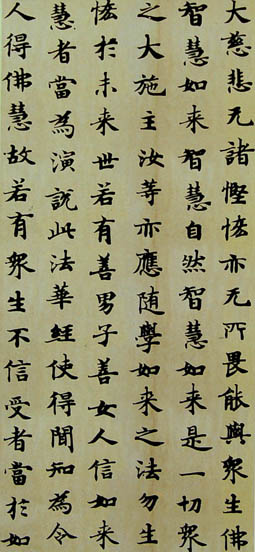 大慈悲无諸慳悋亦无所畏能與衆生佛
智慧如来智慧自然智慧如来是一切衆
之大施主汝等亦應随學如来之法勿生
悋於未来世若有善男子善女人信如来
慧者當為演說此法華經使得聞知為令
人得佛慧故若有衆生不信受者當於如